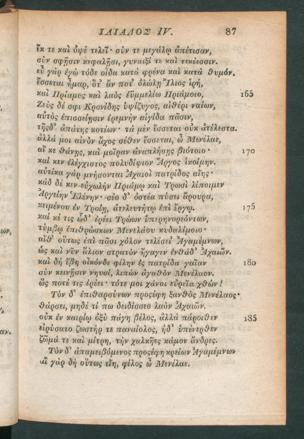 ΙΛΙΑΔΟΣ IV. 87
ἔκ τε καὶ ὀψὲ τελεῖ· σύν τε μεγάλῳ ἀπέτισαν,
σὺν σφῇσιν κεφαλῇσι, γυναιξί τε καὶ τεκέεσσιν.
εὖ γὰρ ἐγὼ τόδε οἶδα κατὰ φρένα καὶ κατὰ θυμόν.
ἔσσεται ἦμαρ, ὅτ' ἄν ποτ' ὀλώλῃ Ἴλιος ἱρή,
καὶ Πρίαμος καὶ λαὸς ἐϋμμελίω Πριάμοιο, 165
Ζεὺς δέ σφι Κρονίδης ὑψίζυγος, αἰθέρι ναίων,
αὐτὸς ἐπισσείῃσιν ἐρεμνὴν αἰγίδα πᾶσιν,
τῆσδ' ἀπάτης κοτέων· τὰ μὲν ἔσσεται οὐκ ἀτέλεστα.
ἀλλά μοι αἰνὸν ἄχος σέθεν ἔσσεται, ὦ Μενέλαε,
αἴ κε θάνῃς, καὶ μοῖραν ἀναπλήσῃς βιότοιο· 170
καί κεν ἐλέγχιστος πολυδίψιον Ἄργος ἱκοίμην.
αὐτίκα γὰρ μνήσονται Ἀχαιοὶ πατρίδος αἴης·
κὰδ δέ κεν εὐχωλὴν Πριάμῳ καὶ Τρωσὶ λίποιμεν
Ἀργείην Ἑλένην· σέο δ' ὀστέα πύσει ἄρουρα,
κειμένου ἐν Τροίῃ, ἀτελευτήτῳ ἐπὶ ἔργῳ. 175
καί κέ τις ὧδ' ἐρέει Τρώων ὑπερηνορεόντων,
τύμβῳ ἐπιθρώσκων Μενελάου κυδαλίμοιο·
αἴθ' οὕτως ἐπὶ πᾶσι χόλον τελέσει' Ἀγαμέμνων,
ὡς καὶ νῦν ἅλιον στρατὸν ἤγαγεν ἐνθάδ' Ἀχαιῶν.
καὶ δὴ ἔβη οἶκόνδε φίλην ἐς πατρίδα γαῖαν 180
σὺν κεινῇσιν νηυσί, λιπὼν ἀγαθὸν Μενέλαον.
ὥς ποτέ τις ἐρέει· τότε μοι χάνοι εὐρεῖα χθών!
Τὸν δ' ἐπιθαρσύνων προσέφη ξανθὸς Μενέλαος·
θάρσει, μηδέ τί πω δειδίσσεο λαὸν Ἀχαιῶν.
οὐκ ἐν καιρίῳ ὀξὺ πάγη βέλος, ἀλλὰ πάροιθεν 185
εἰρύσατο ζωστήρ τε παναίολος, ἠδ' ὑπένερθεν
ζῶμά τε καὶ μίτρη, τὴν χαλκῆες κάμον ἄνδρες.
Τὸν δ' ἀπαμειβόμενος προσέφη κρείων Ἀγαμέμνων
αἲ γὰρ δὴ οὕτως εἴη, φίλος ὦ Μενέλαε.